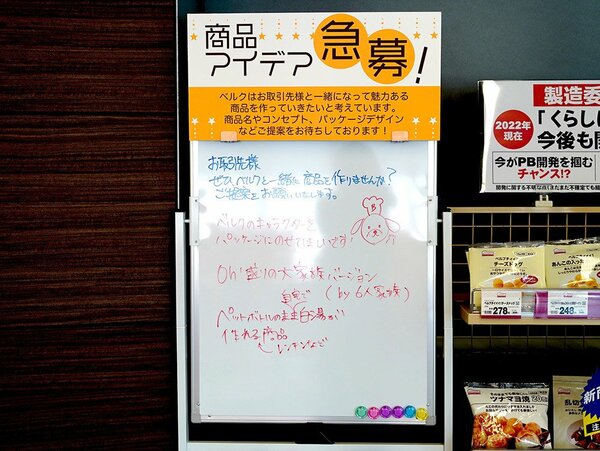 商品
アイデア
急募!
ベルクはお取引先様と一緒になって魅力ある
商品を作っていきたいと考えています。
商品名やコンセプト、パッケージデザイン
などご提案をお待ちしております!
お取引先様
ぜひベルクと一緒に商品を作りませんか?
ご提案をお願いいたします。
ベルクのキャラクターを
パッケージにのせてほしいです!
B
Oh!盛りの大家族バージョン
(by 6人家族)
自宅で
ペットボトルのまま白湯が
作れる商品
レンチンなど
製造委
2022年
現在
「くらしに
今後も関
今がPB開発を掴む
チャンス!?
チーズドッグ
278
248
ツナマヨ焼
20個
乱切
新商